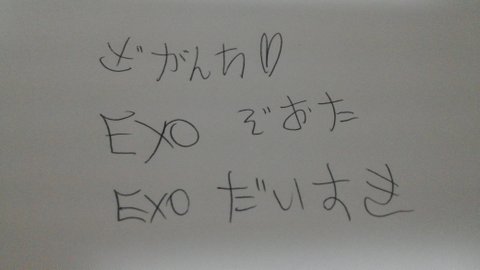 どがんち♡
EXO ぞおた
EXO だいすき